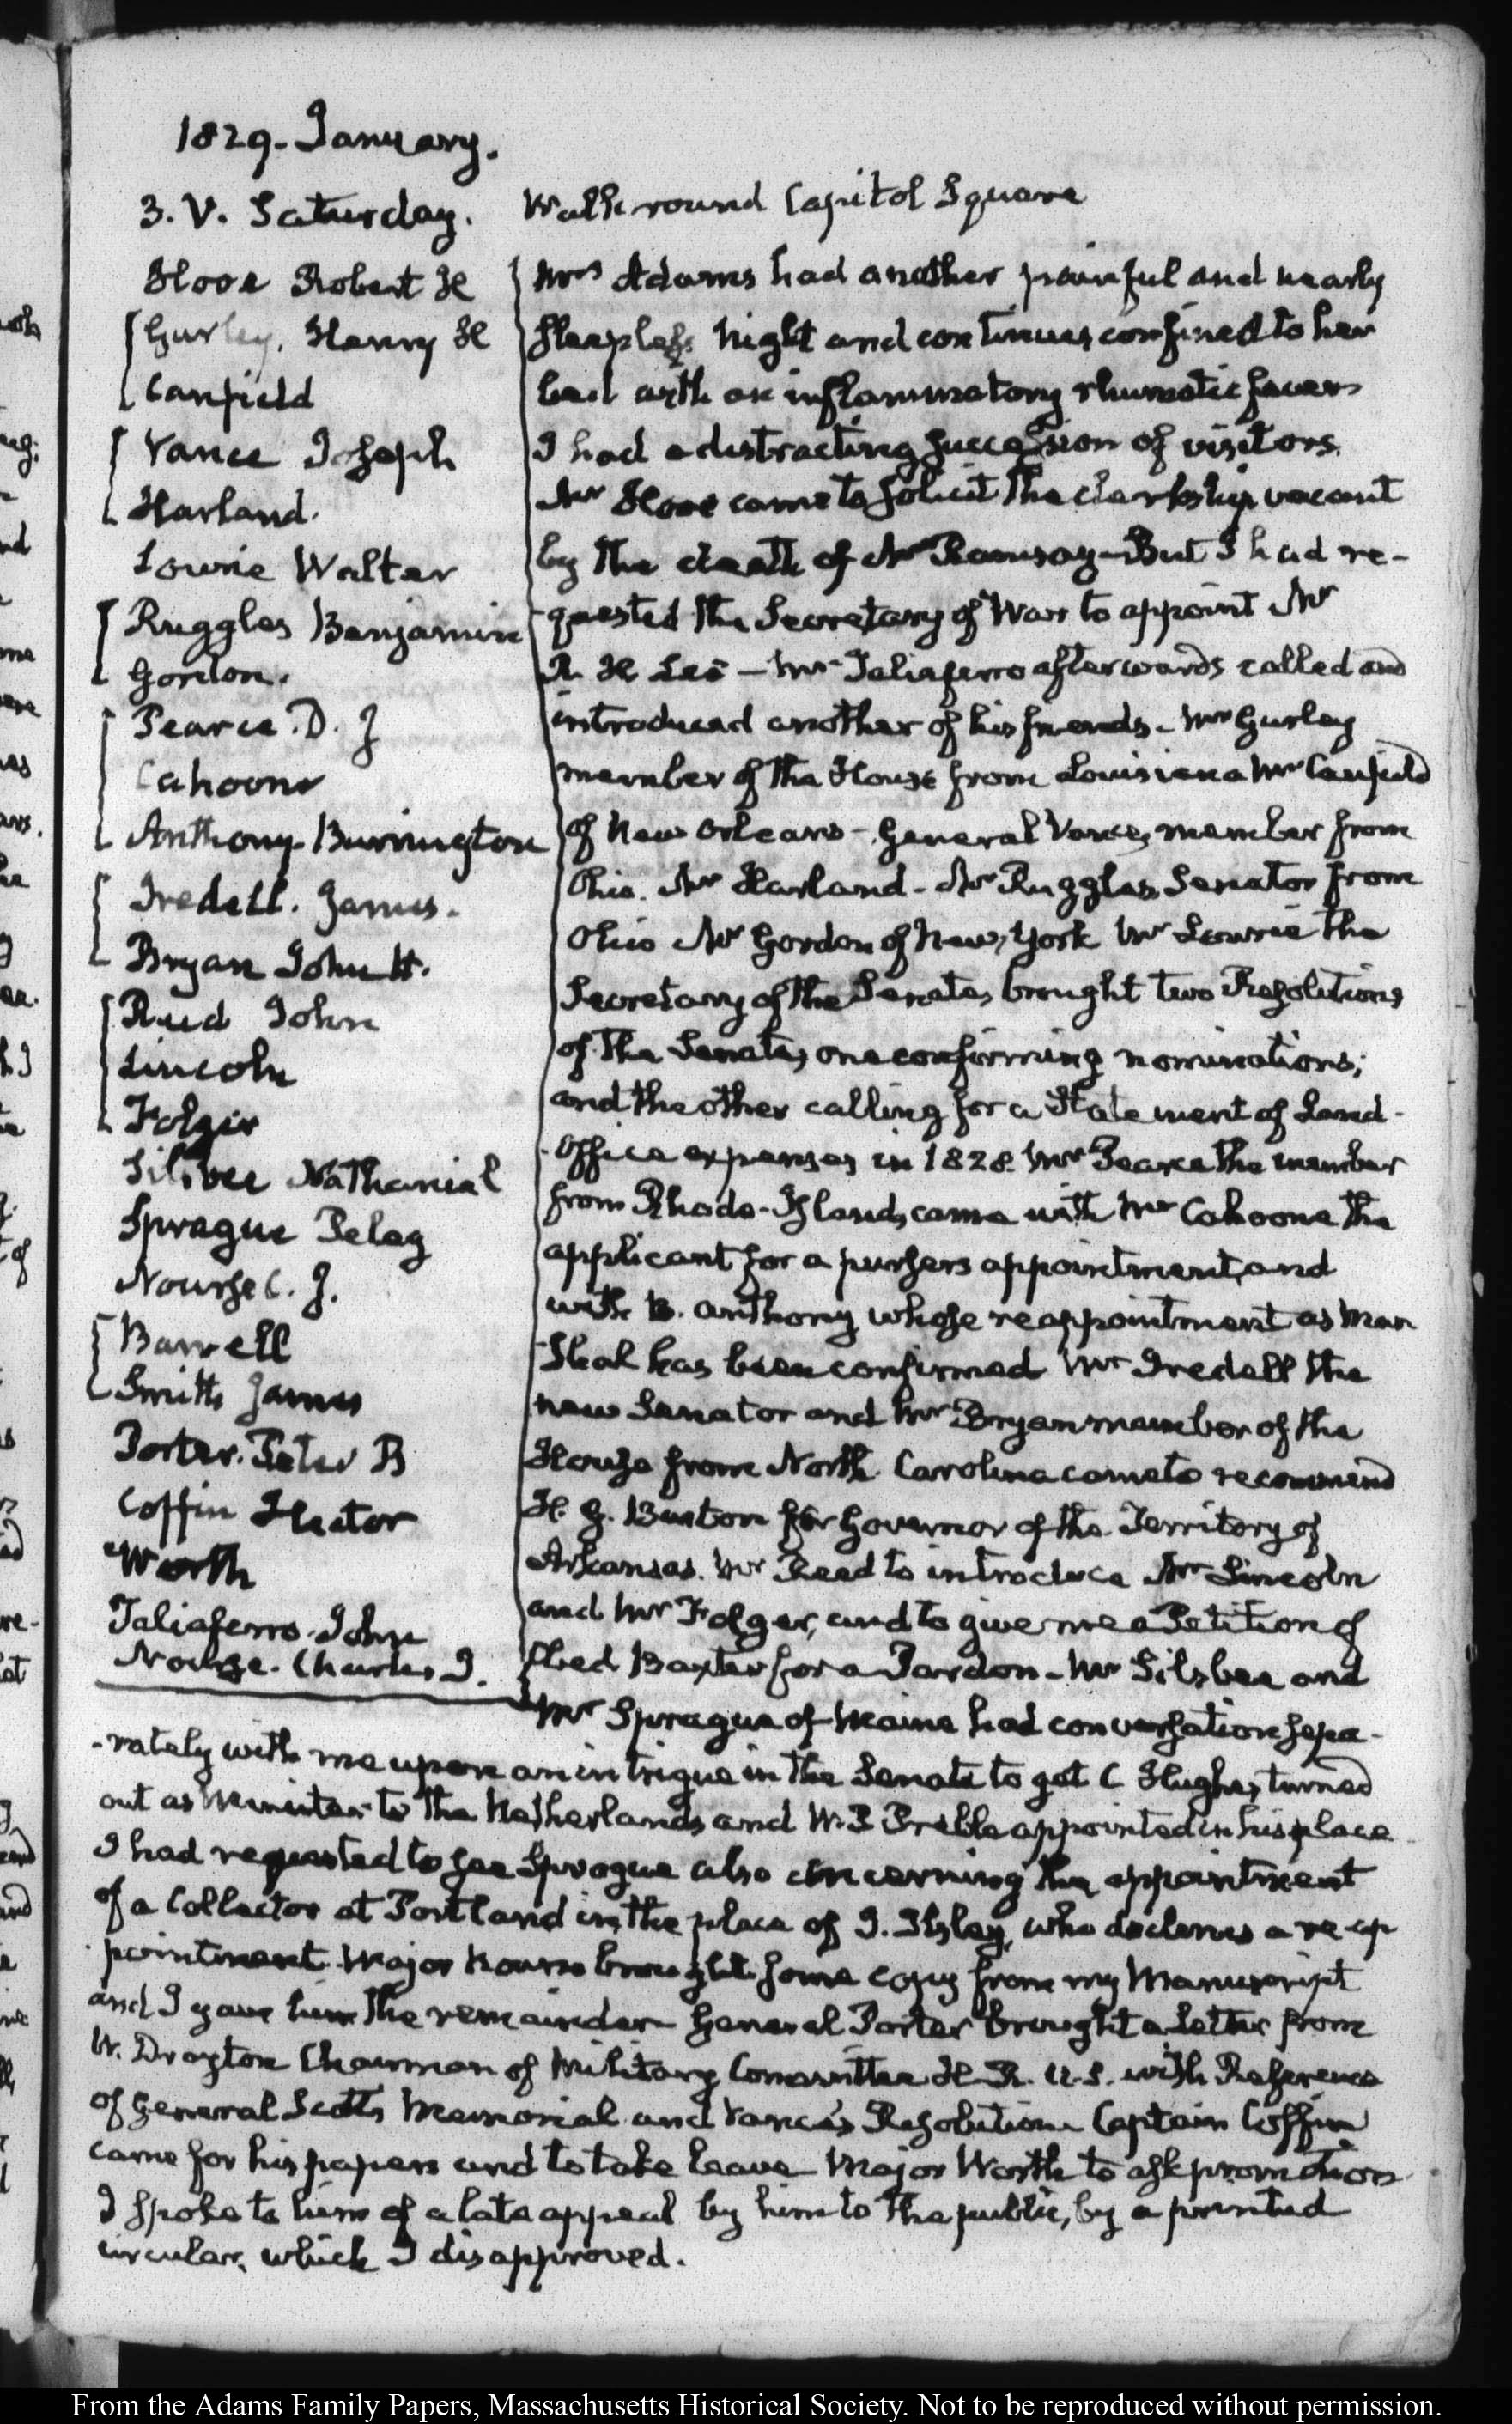 1829. January.
3. V. Saturday.
Hooe Robert H
Gurley, Henry H
Canfield
Vance Joseph
Harland.
Lowrie Walter
Ruggles Benjamin
Gordon.
Pearce. D. J
Cahoone
Anthony. Burrington
Iredell. James.
Bryan John H.
Reed John
Lincoln
Folger
Silsbee Nathaniel
Sprague Peleg
Nourse C. J.
Barrell
Smith James
Porter. Peter B
Coffin Hector
Worth
Taliaferro. John
Nourse. Charles J.
Walk round Capitol Square
Mrs Adams had another painful and nearly
sleepless night and continues confined to her
bed with an inflammatory rhumatic fever
I had a distracting succession of visitors.
Mr Hooe came to solicit the clerkship vacant
by the death of Mr Ramsay—But I had re-
-quested the Secretary of War to appoint Mr
R H Lee — Mr Taliaferro afterwards called and
introduced another of his friends. Mr Gurley
member of the House from Louisiana Mr Canfield
of New Orleans - General Vance, member from
Ohio. Mr Harland - Mr Ruggles, Senator from
Ohio Mr Gordon of New York Mr Lowrie the
Secretary of the Senate, brought two Resolutions
of the Senate, one confirming nominations;
and the other calling for a Statement of Land-
-Office expenses in 1828. Mr Pearce the member
from Rhode-Island, came with Mr Cahoone the
applicant for a pursers appointment, and
with B. Anthony whose reappointment as Mar
-shal has been confirmed Mr Iredell the
new Senator and Mr Bryan member of the
House from North Carolina came to recommend
H. G. Burton for Governor of the Territory of
Arkansas. Mr Reed to introduce Mr Lincoln
and Mr Folger, and to give me a Petition of
Baxter for a Pardon - Mr Silsbee and
Mr Sprague of Maine had conversation sepa-
-rately with me upon an intrigue in the Senate to get C Hughes turned
out as Minister to the Netherlands and W. P Preble appointed in his place
I had requested to see Sprague also concerning the appointment
of a Collector at Portland in the place of I. Ilsley, who declines a re-ap
-pointment. Major Nourse brought some copy from my Manuscript
and I gave him the remainder General Porter brought a letter from
W. Drayton Chairman of Military Committee H. R. U.S. with Reference
of General Scotts Memorial and Vance's Resolution Captain Coffin
came for his papers and to take leave Major Worth to ask promotion
I spoke to him of a late appeal by him to the public, by a printed
circular, which I disapproved.
From the Adams Family Papers, Massachusetts Historical Society. Not to be reproduced without permission.